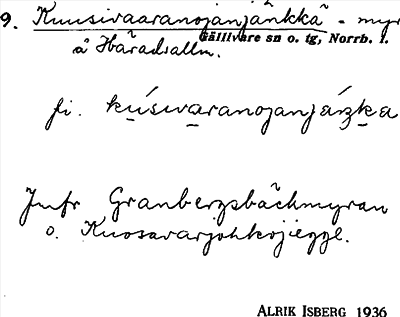 9. Kuusivaaranojanjänkkä - myr
Gällivare sn o. tg, Norrb. l.
å Häradsallm.
fi. kúsivaranojanjáŋka
Jmfr Granbergsbäckmyran
o. Kuosavarjohkojegge.
ALRIK ISBERG 1936